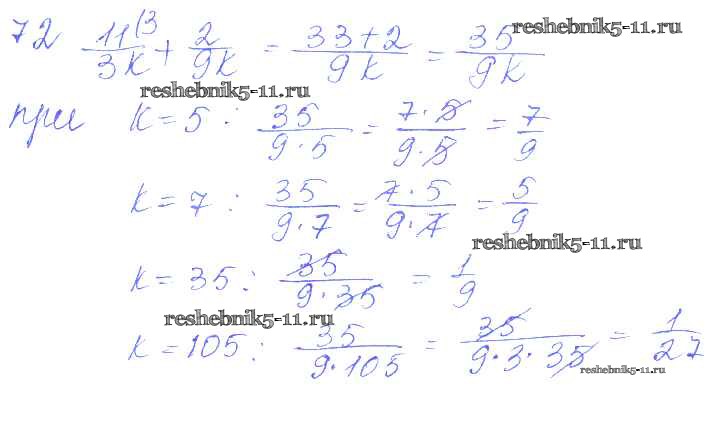 72 11(3/3k + 2/9k = 33+2/9k = 35/9k
reshebnik5-11.ru
reshebnik5-11.ru
при k=5: 35/9·5 = 7·5/9·5 = 7/9
k=7: 35/9·7 = 7·5/9·7 = 5/9
reshebnik5-11.ru
k=35: 35/9·35 = 1/9
reshebnik5-11.ru
k=105: 35/9·105 = 35/9·3·35 = 1/27
reshebnik5-11.ru